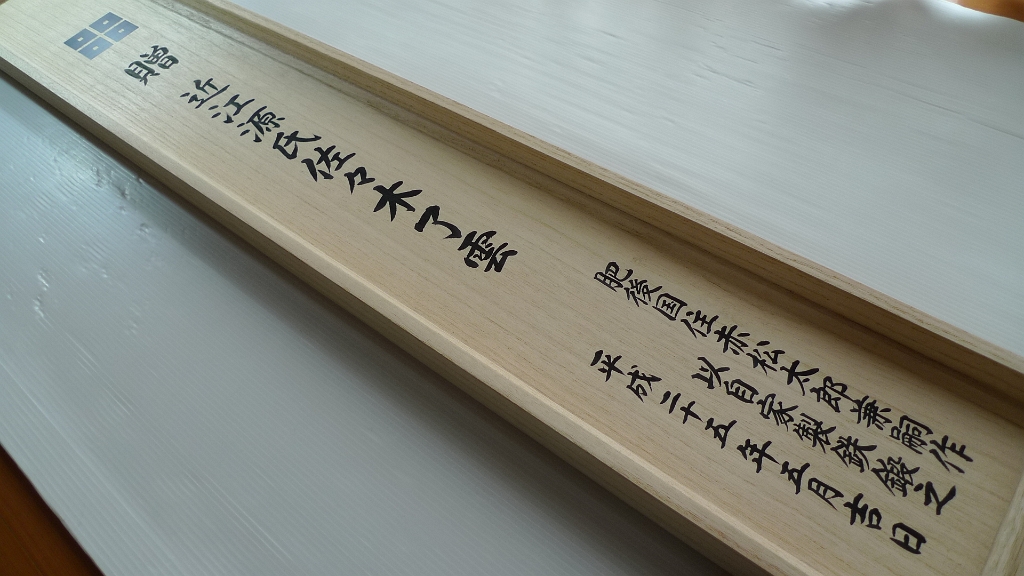 贈
近江源氏佐々木了雲
肥後国住赤松太郎兼嗣作
以自家製鉄鍛之
平成二十五年五月吉日